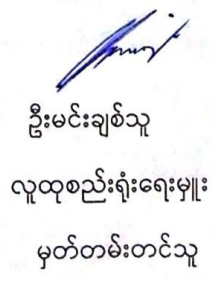 ဦးမင်းချစ်သူ
လူထုစည်းရုံးရေးမှူး
မှတ်တမ်းတင်သူ